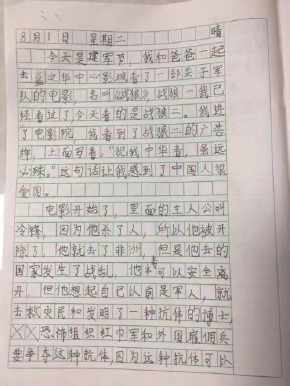 8月1日 星期二 晴
今天是建军节,我和爸爸一起
去 中华中心影城看了一部关于军
队的电影,名叫《战狼》,战狼一我已
经看过了今天看的是战狼二。我进
了电影院 我看到了战狼二的广告
牌,上面写着,"犯我中华者,虽远
必殊,"这句话让我感到了中国人很
爱国。
电影开始了,里面的主人公叫
冷锋,因为他杀了人,所以他被开
除了,他就去了非洲,但是他去的
国家发生了战乱,他 可以安全离
开,但他想起自己以前是军人,就
去救灾民和发明了一种抗体的博士,
XX恐怖组织红巾军和外国雇佣兵
要争夺这种抗体,因为这种抗体可以